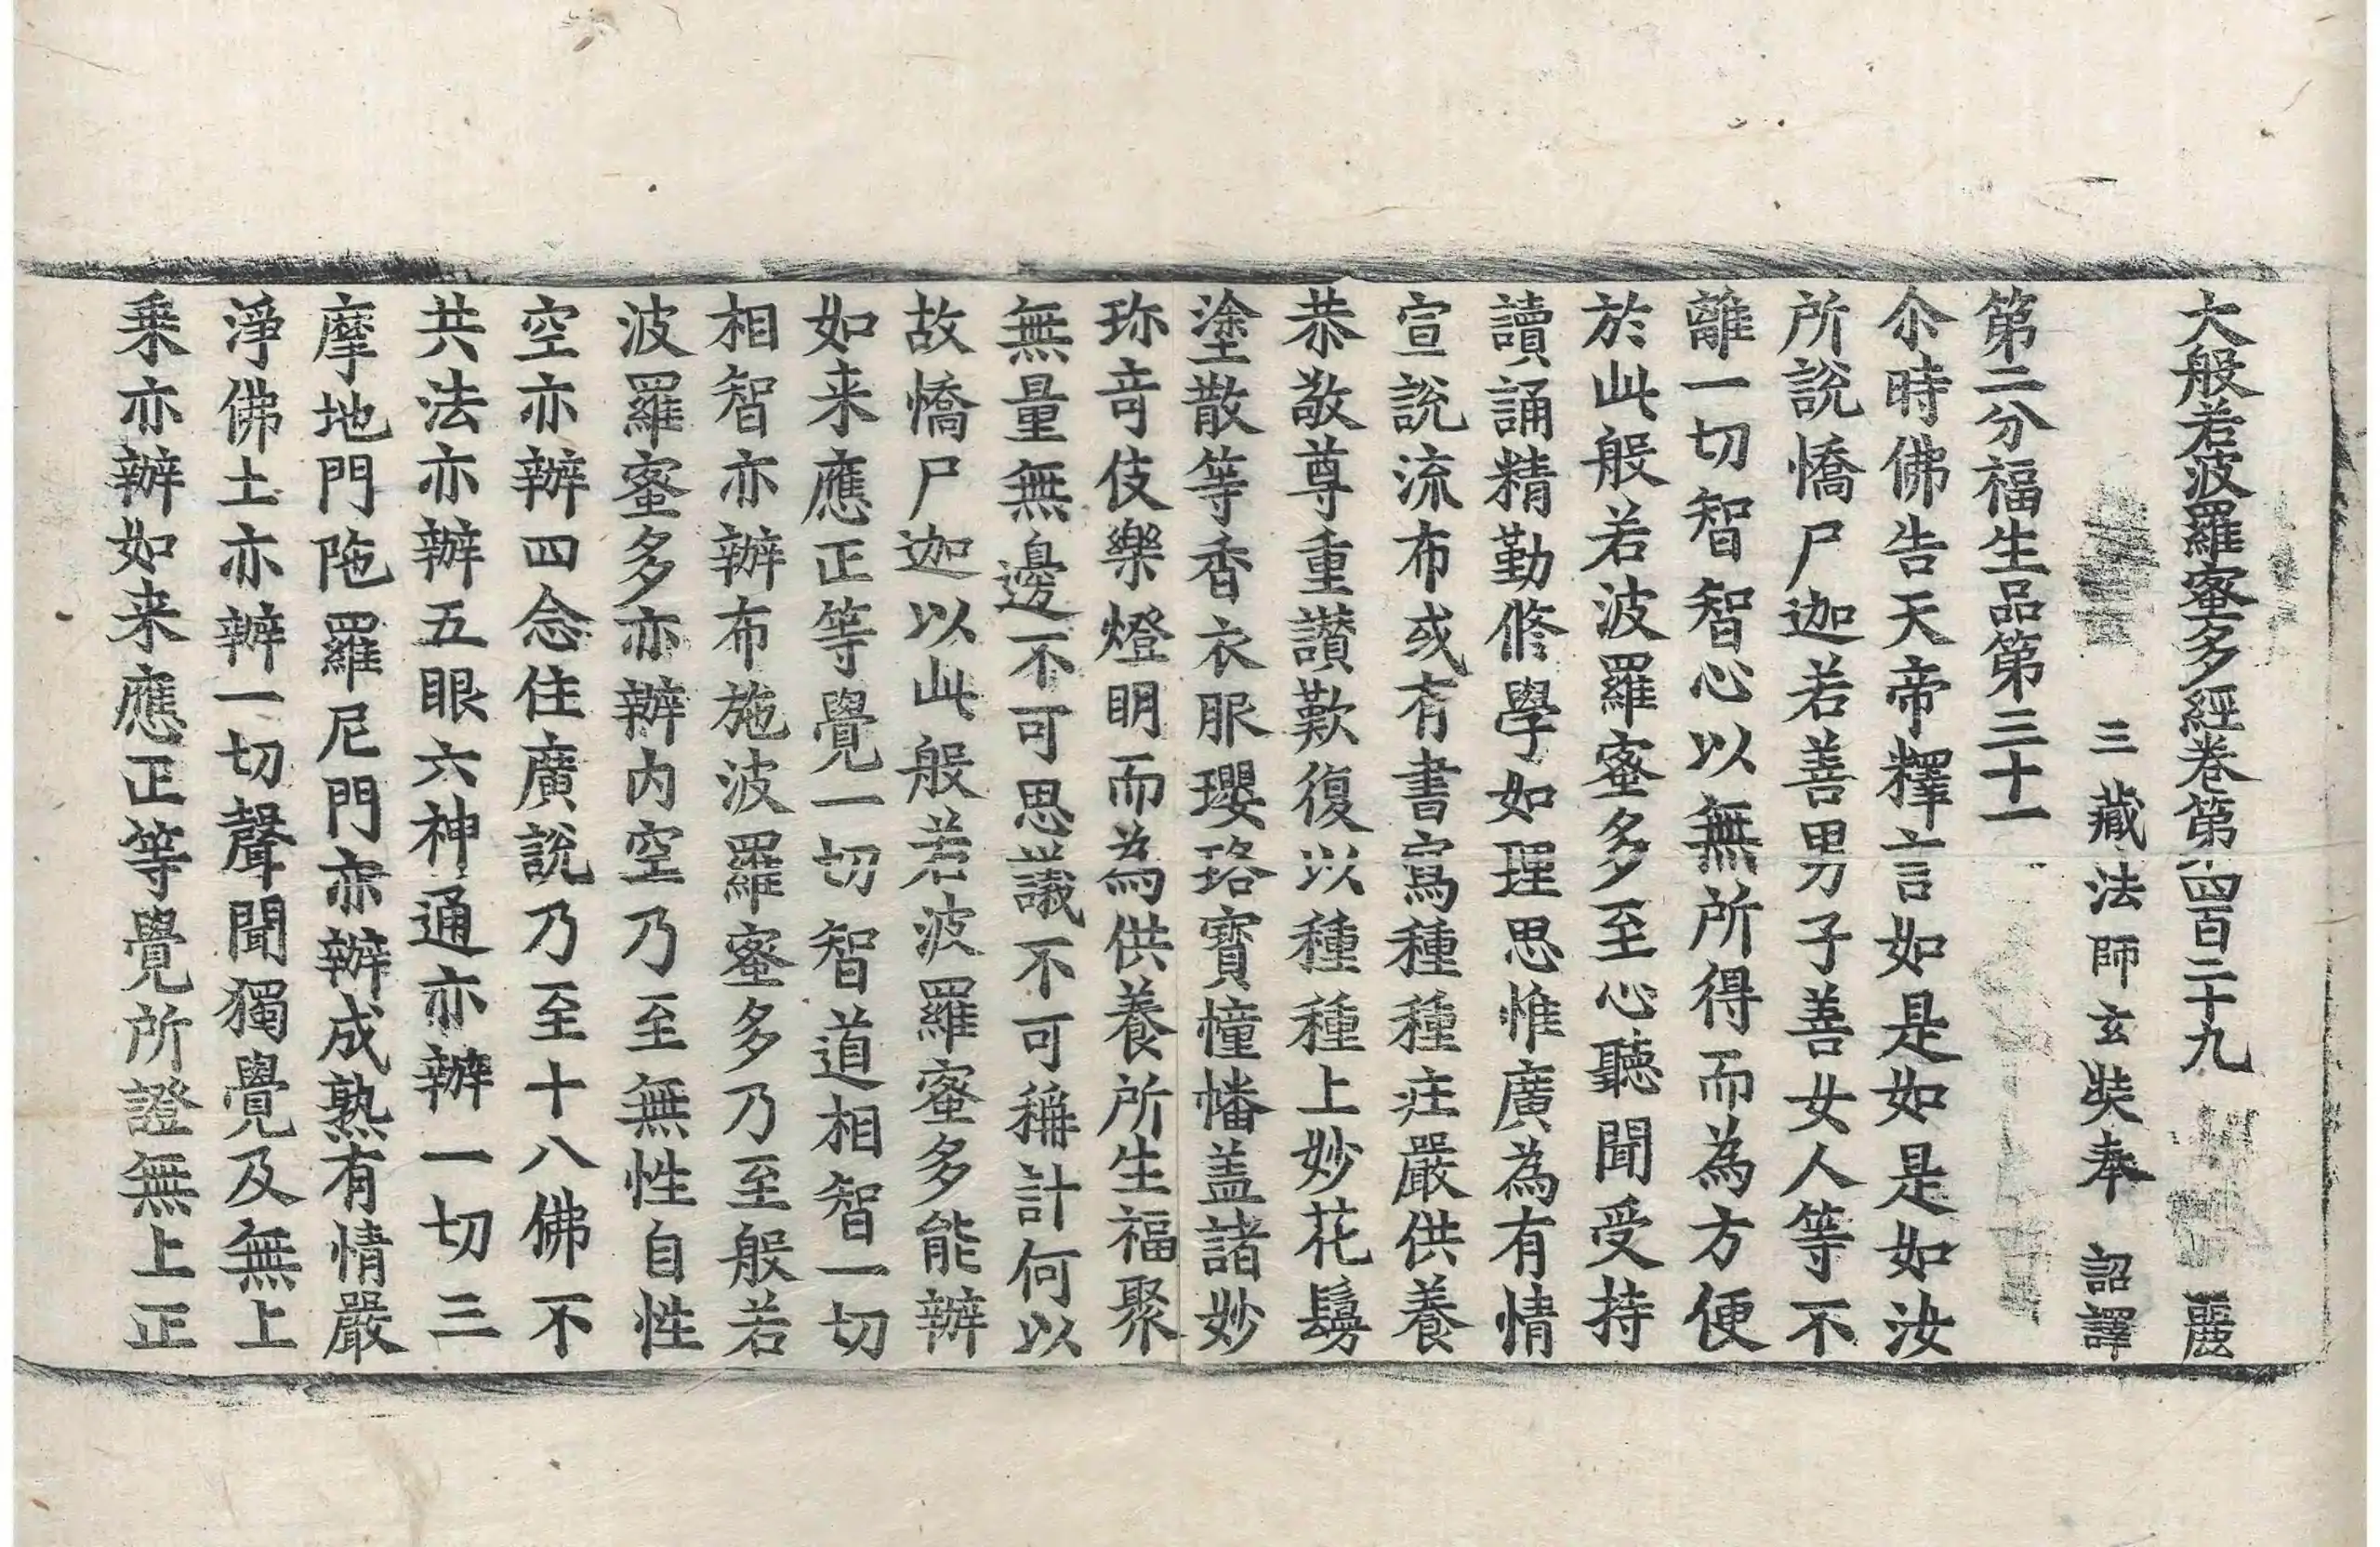 大般若波羅蜜多經卷第四百二十九 麗
三藏法師玄奘奉 詔譯
第二分福生品第三十一
尒時佛告天帝釋言如是如是如汝
所說憍尸迦若善男子善女人等不
離一切智智心以無所得而為方便
於此般若波羅蜜多至心聽聞受持
讀誦精勤修學如理思惟廣為有情
宣說流布或有書寫種種莊嚴供養
恭敬尊重讚歎復以種種上妙花鬘
塗散等香衣服瓔珞寶幢幡盖諸妙
珎竒伎樂燈明而為供養所生福聚
無量無邊不可思議不可稱計何以
故憍尸迦以此般若波羅蜜多能辦
如来應正等覺一切智道相智一切
相智亦辦布施波羅蜜多乃至般若
波羅蜜多亦辦内空乃至無性自性
空亦辦四念住廣說乃至十八佛不
共法亦辦五眼六神通亦辦一切三
摩地門陁羅尼門亦辦成熟有情嚴
淨佛土亦辦一切聲聞獨覺及無上
乗亦辦如来應正等覺所證無上正